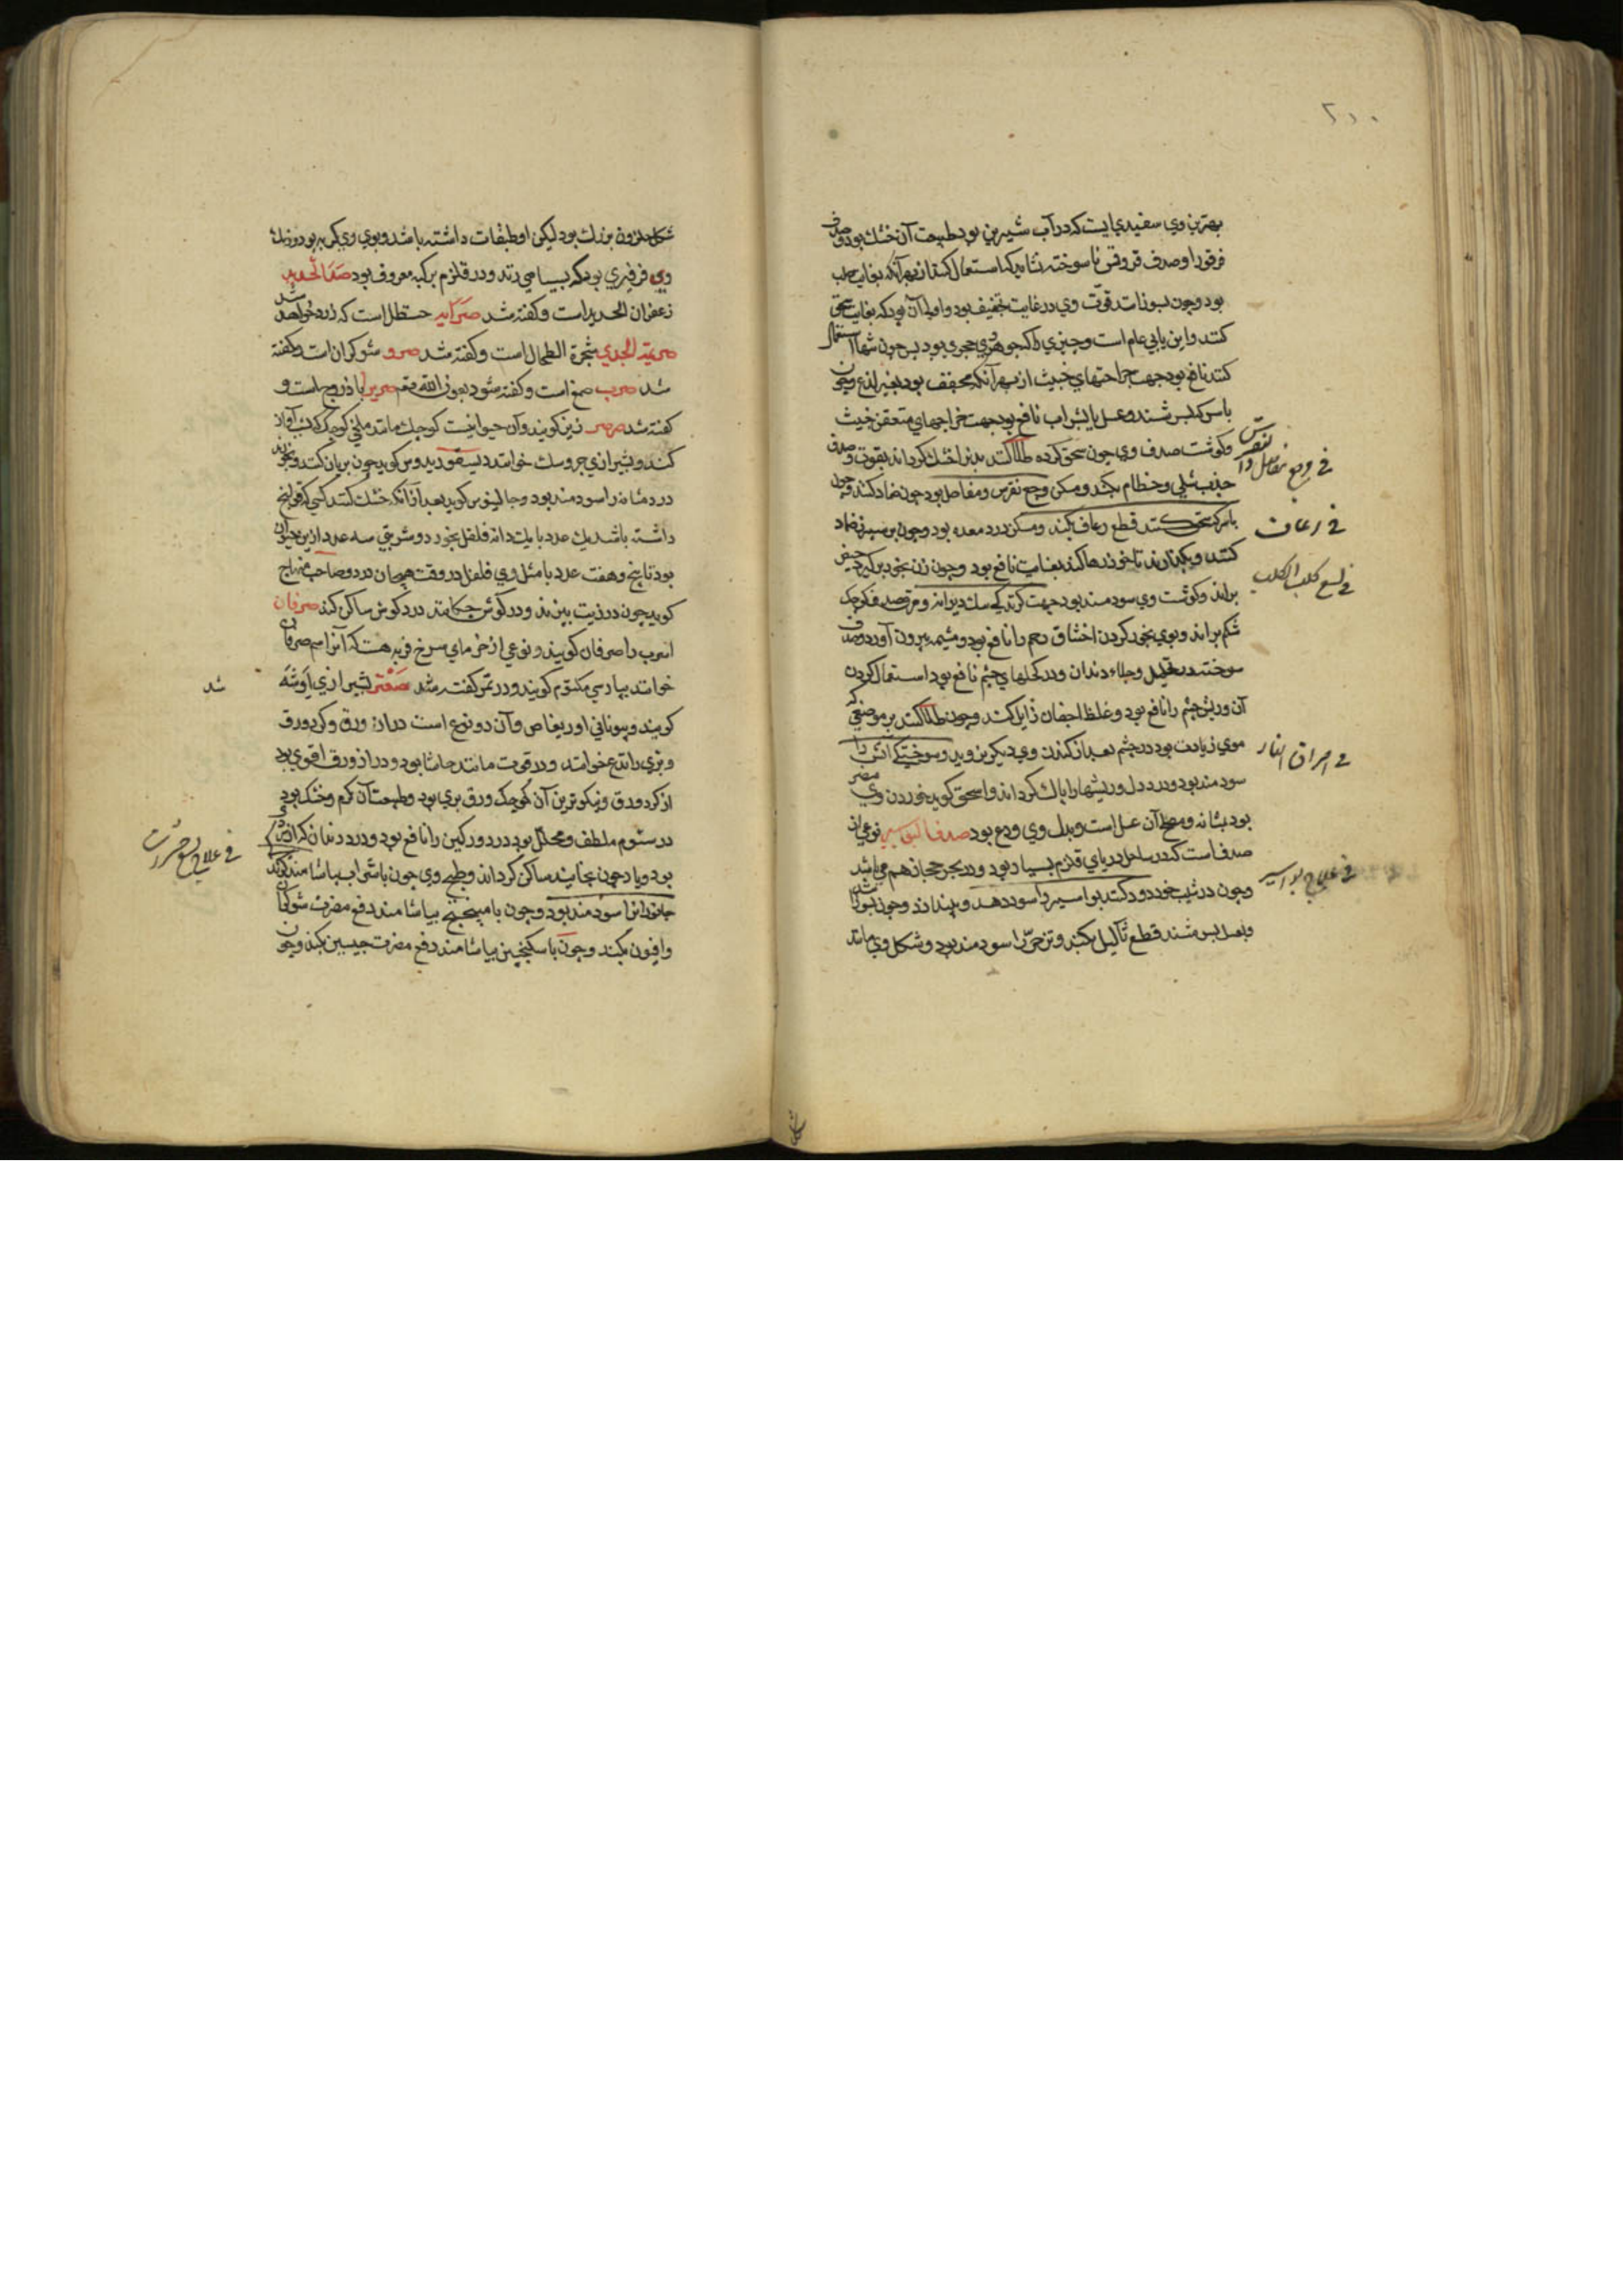 ۲۰۰
بهترین وي سفیدي است که در آب شیرین بود طبیعت آن خشك بود وصدف
فرفورا وصدف قروقس ناسوخته نشاید که استعمال کنند از بهر آنکه بغایت صلب
بود وچون بسوزانند قوّت وي در غایت تجفیف بود واولی آن بود که بغایت سحق
کنند واین بابي عام است وچیزي که جوهروي حجري بود پس چون تنها استعمال
کنند نافع بود جهت جراحتهاي خبیث از بهر آنکه مجفف بود بغیر لذع وچون
با سرکه بسرشند وعسل یا بشراب نافع بود جهت جراحهاي متعفن خبیث
وکوشت صدف وي چون سحق کرده طلا کنند بدنرا خشك کرداند بقوت وصدف
جذب سلي وعظام بکند ومسکن وجع نقرس ومفاصل بود چون ضماد کنند وچون
با سرکه سحق کنند قطع رعاف بکند ومسکن درد معده بود وچون بر سپرز ضماد
کنند وبکذارند تا خود رها کند بغایت نافع بود وچون زن بخود برکیرد حیض
براند وکوشت وي سودمند بود جهت کزندکي سك دیوانه و کوچك
شکم براند وبوي بخور کردن اختناق رحم را نافع بود ومشیمه بیرون آورد وصدف
سوخته در وجلاء دندان ودر کحلهاي چشم نافع بود استعمال کردن
آن وریش چشم را نافع بود وغلظ اجفان زایل کند وچون طلا کنند بر موضعي که
موي زیادت بود در چشم بعد از کندن وي دیکر نروید وسوختکي آتش را
سودمند بود ودرد دل وریشها را پاك کرداند واسحق کوید خوردن وي مضر
بود بمثانه ومصلح آن عسل است وبدل وي ودع بود صدف البواسیر نوعي از
صدف است که در ساحل دریاي قلزم بسیار بود ودر بحر حجاز هم مي باشد
وچون در شیب خود دود کنند بواسیر را سود دهد وبیندازد وچون بسوزانند
وبعسل بسرشند قطع ثآلیل بکند وتزحیر را سودمند بود وشکل وي مانند
في وجع مفاصل والنقرس
في رعاف
في لسع کلب الکلب
في احراق النار
في علاج بواسیر
شکل حلزون بزرك بود لیکن او طبقات داشته باشد وبوي وي کریه بود ورنك
وي فرفیري بود که بسیاهي زند ودر قلزم برکبه معروف بود صدا الحدید
زعفران الحدید است وکفته شد صرایه حنظل است که زرد خواهد شد
صریمة الجدي شجرة الطحال است وکفته شد صرو شوکران است وکفته
شد صرب صمغ است وکفته شود بعون الله تع صریرا باذروج است و
کفته شد صرصر نیز کویند وآن حیوانیست کوچك مانند ملخي کوچك که شب آواز
کند وبشیرازي جروسك خوانند دیسقوریدوس کوید چون بریان کنند وبخورند
درد مثانه را سودمند بود وجالینوس کوید بعد از آنکه خشك کنند کسي که قولنج
داشته باشد یك عدد با یك دانه فلفل بخورد وشربتي سه عدد از این حیوان
بود تا پنج وهفت عدد با مثل وي فلفل در وقت هیجان درد وصاحب منهاج
کوید چون در زیت بپزند ودر کوش چکانند درد کوش ساکن کند صرفان
اسرب را صرفان کویند ونوعي از خرماي سرخ فربه هست که آنرا هم صرفان
خوانند بپارسي مکتوم کویند ودر تمر کفته شد صعتر بشیرازي اوشه
کویند وبیوناني اوریغانس وآن دو نوع است دراز ورق وکرد ورق
وبري را ندغ خوانند ودر قوت مانند حاشا بود ودراز ورق اقوي بود
از کرد ورق ونیکوترین آن کوچك ورق بري بود وطبیعت آن کرم وخشك بود
در سیوم ملطف ومحلل بود درد ورکین را نافع بود ودرد دندان که از سردي
بود ویا چون بخایند ساکن کرداند وطبیخ وي چون با شراب بیاشامند کزندکي
جانورانرا سودمند بود وچون با میبختج بیاشامند دفع مضرت شوکران
وافیون بکند وچون با سکنجبین بیاشامند دفع مضرت جبسین بکند وچون
شد
في علاج لسع حشرات